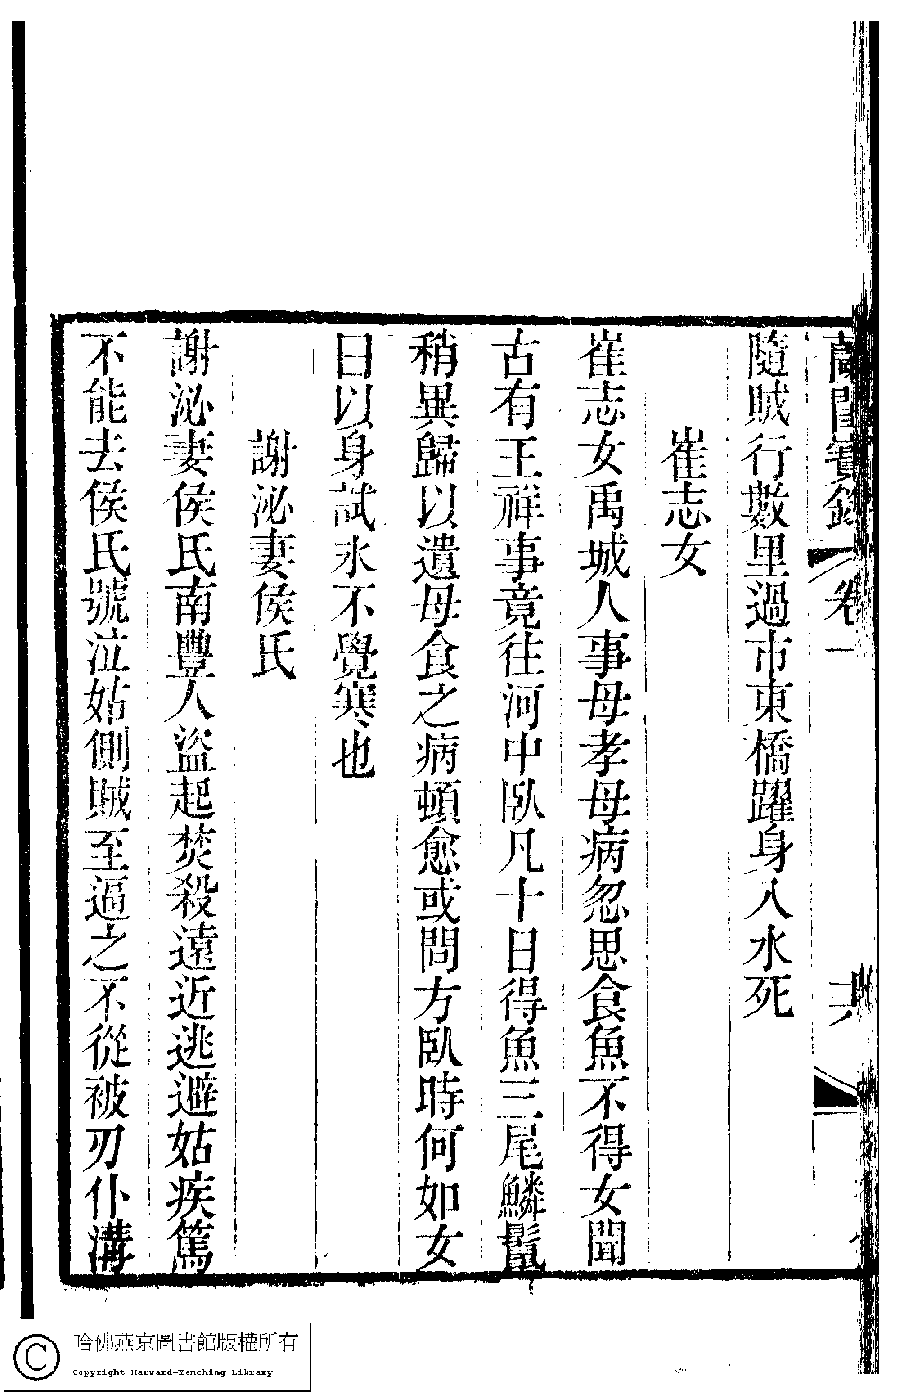 蘭閨寶錄 卷一
隨賊行數里過市東橋躍身入水死
崔志女
崔志女禹城人事母孝母病忽思食魚不得女聞
古有王祥事竟往河中臥凡十日得魚三尾鱗鬣
稍異歸以遺母食之病頓愈或問方臥時何如女
曰以身試氷不覺寒也
謝泌妻侯氏
謝泌妻侯氏南豐人盜起焚殺遠近逃避姑疾篤
不能去侯氏號泣姑側賊至逼之不從被刃仆溝
哈佛燕京圖書館版權所有
Copyright Harvard-Yenching Library